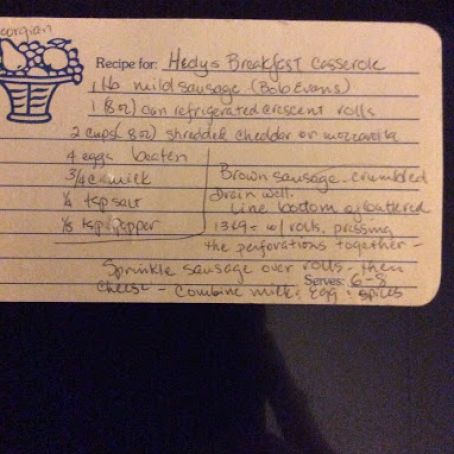 Georgian
Recipe for: Hedys Breakfast Casserole
1 lb mild sausage (Bob Evans)
1 (8 oz) can refrigerated crescent rolls
2 cups (8 oz) shredded cheddar or mozzarella
4 eggs beaten
3/4 c milk
1/4 tsp salt
1/8 tsp pepper
Brown sausage - crumbled
Drain well.
Line bottom of buttered
13x9 w/ rolls, pressing
the perforations together -
Sprinkle sausage over rolls - then
Serves: 6-8
cheese - combine milk, egg, spices